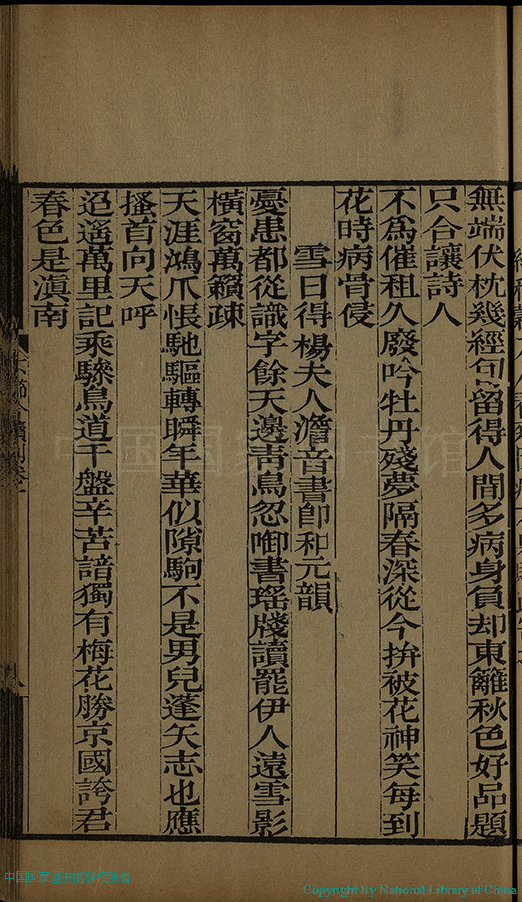 無端伏枕幾經旬留得人間多病身負却東籬秋色好品題
只合讓詩人
不爲催租久廢吟牡丹殘夢隔春深從今拚被花神笑每到
花時病骨侵
雪日得楊夫人澹音書卽和元韻
憂患都從識字餘天邊靑鳥忽啣書瑤牋讀罷伊人遠雪影
橫窗萬籟疎
天涯鴻爪悵馳驅轉瞬年華似隙駒不是男兒蓬矢志也應
搔首向天呼
迢遙萬里記乘驂鳥道千盤辛苦諳獨有梅花勝京國誇君
春色是滇南
中国国家图书馆
Copyright By National Library of China